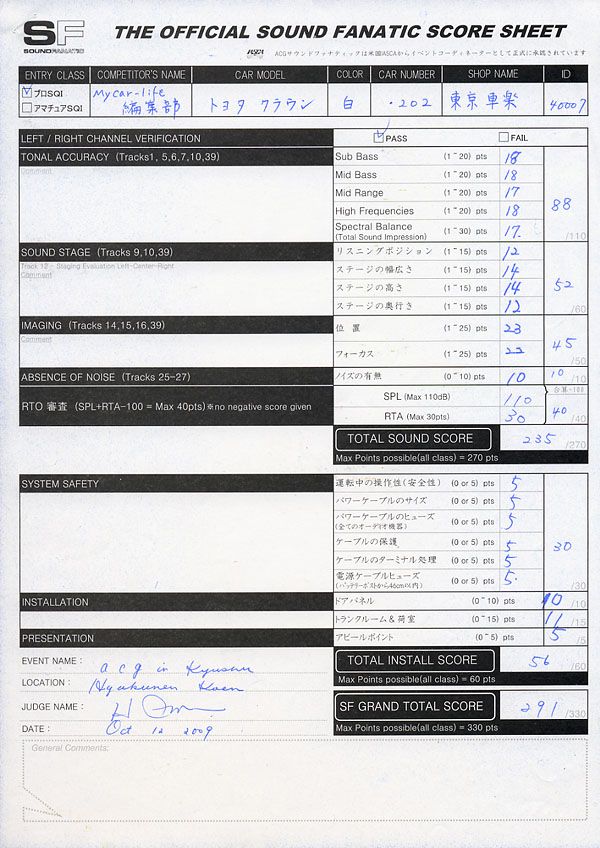 SF
SOUNDFANATIC
THE OFFICIAL SOUND FANATIC SCORE SHEET
ACGサウンドファナティックは米国IASCAからイベントコーディネーターとして正式に承認されています
ENTRY CLASS COMPETITOR'S NAME CAR MODEL COLOR CAR NUMBER SHOP NAME ID
プロSQI
アマチュアSQI
Mycar-life
編集部
トヨタ クラウン 白 ・202 東京車楽 40007
LEFT / RIGHT CHANNEL VERIFICATION PASS FAIL
TONAL ACCURACY (Tracks1, 5,6,7,10,39)
Comment
Sub Bass (1~20) pts 18
Mid Bass (1~20) pts 18
Mid Range (1~20) pts 17
High Frequencies (1~20) pts 18
Spectral Balance (1~30) pts 17
(Total Sound Impression)
88 /110
SOUND STAGE (Tracks 9,10,39)
Track 12 - Staging Evaluation Left-Center-Right
Comment
リスニングポジション (1~15) pts 12
ステージの幅広さ (1~15) pts 14
ステージの高さ (1~15) pts 14
ステージの奥行き (1~15) pts 12
52 /60
IMAGING (Tracks 14,15,16,39)
Comment
位置 (1~25) pts 23
フォーカス (1~25) pts 22
45 /50
ABSENCE OF NOISE (Tracks 25-27) ノイズの有無 (0~10) pts 10 10 /10
RTO 審査 (SPL+RTA-100 = Max 40pts)※no negative score given
SPL (Max 110dB) 110
RTA (Max 30pts) 30
合算-100
40 /40
TOTAL SOUND SCORE 235 /270
Max Points possible(all class) = 270 pts
SYSTEM SAFETY
運転中の操作性(安全性) (0 or 5) pts 5
パワーケーブルのサイズ (0 or 5) pts 5
パワーケーブルのヒューズ (0 or 5) pts 5
(全てのオーディオ機器)
ケーブルの保護 (0 or 5) pts 5
ケーブルのターミナル処理 (0 or 5) pts 5
電源ケーブルヒューズ (0 or 5) pts 5
(バッテリーポストから46cm以内)
30 /30
INSTALLATION ドアパネル (0~10) pts 10 /10
トランクルーム&荷室 (0~15) pts 11 /15
PRESENTATION アピールポイント (0~5) pts 5 /5
TOTAL INSTALL SCORE 56 /60
Max Points possible(all class) = 60 pts
SF GRAND TOTAL SCORE 291 /330
Max Points possible(all class) = 330 pts
EVENT NAME : acg in Kyushu
LOCATION : Hyakunen Koen
JUDGE NAME :
DATE : Oct 12 2009
General Comments: